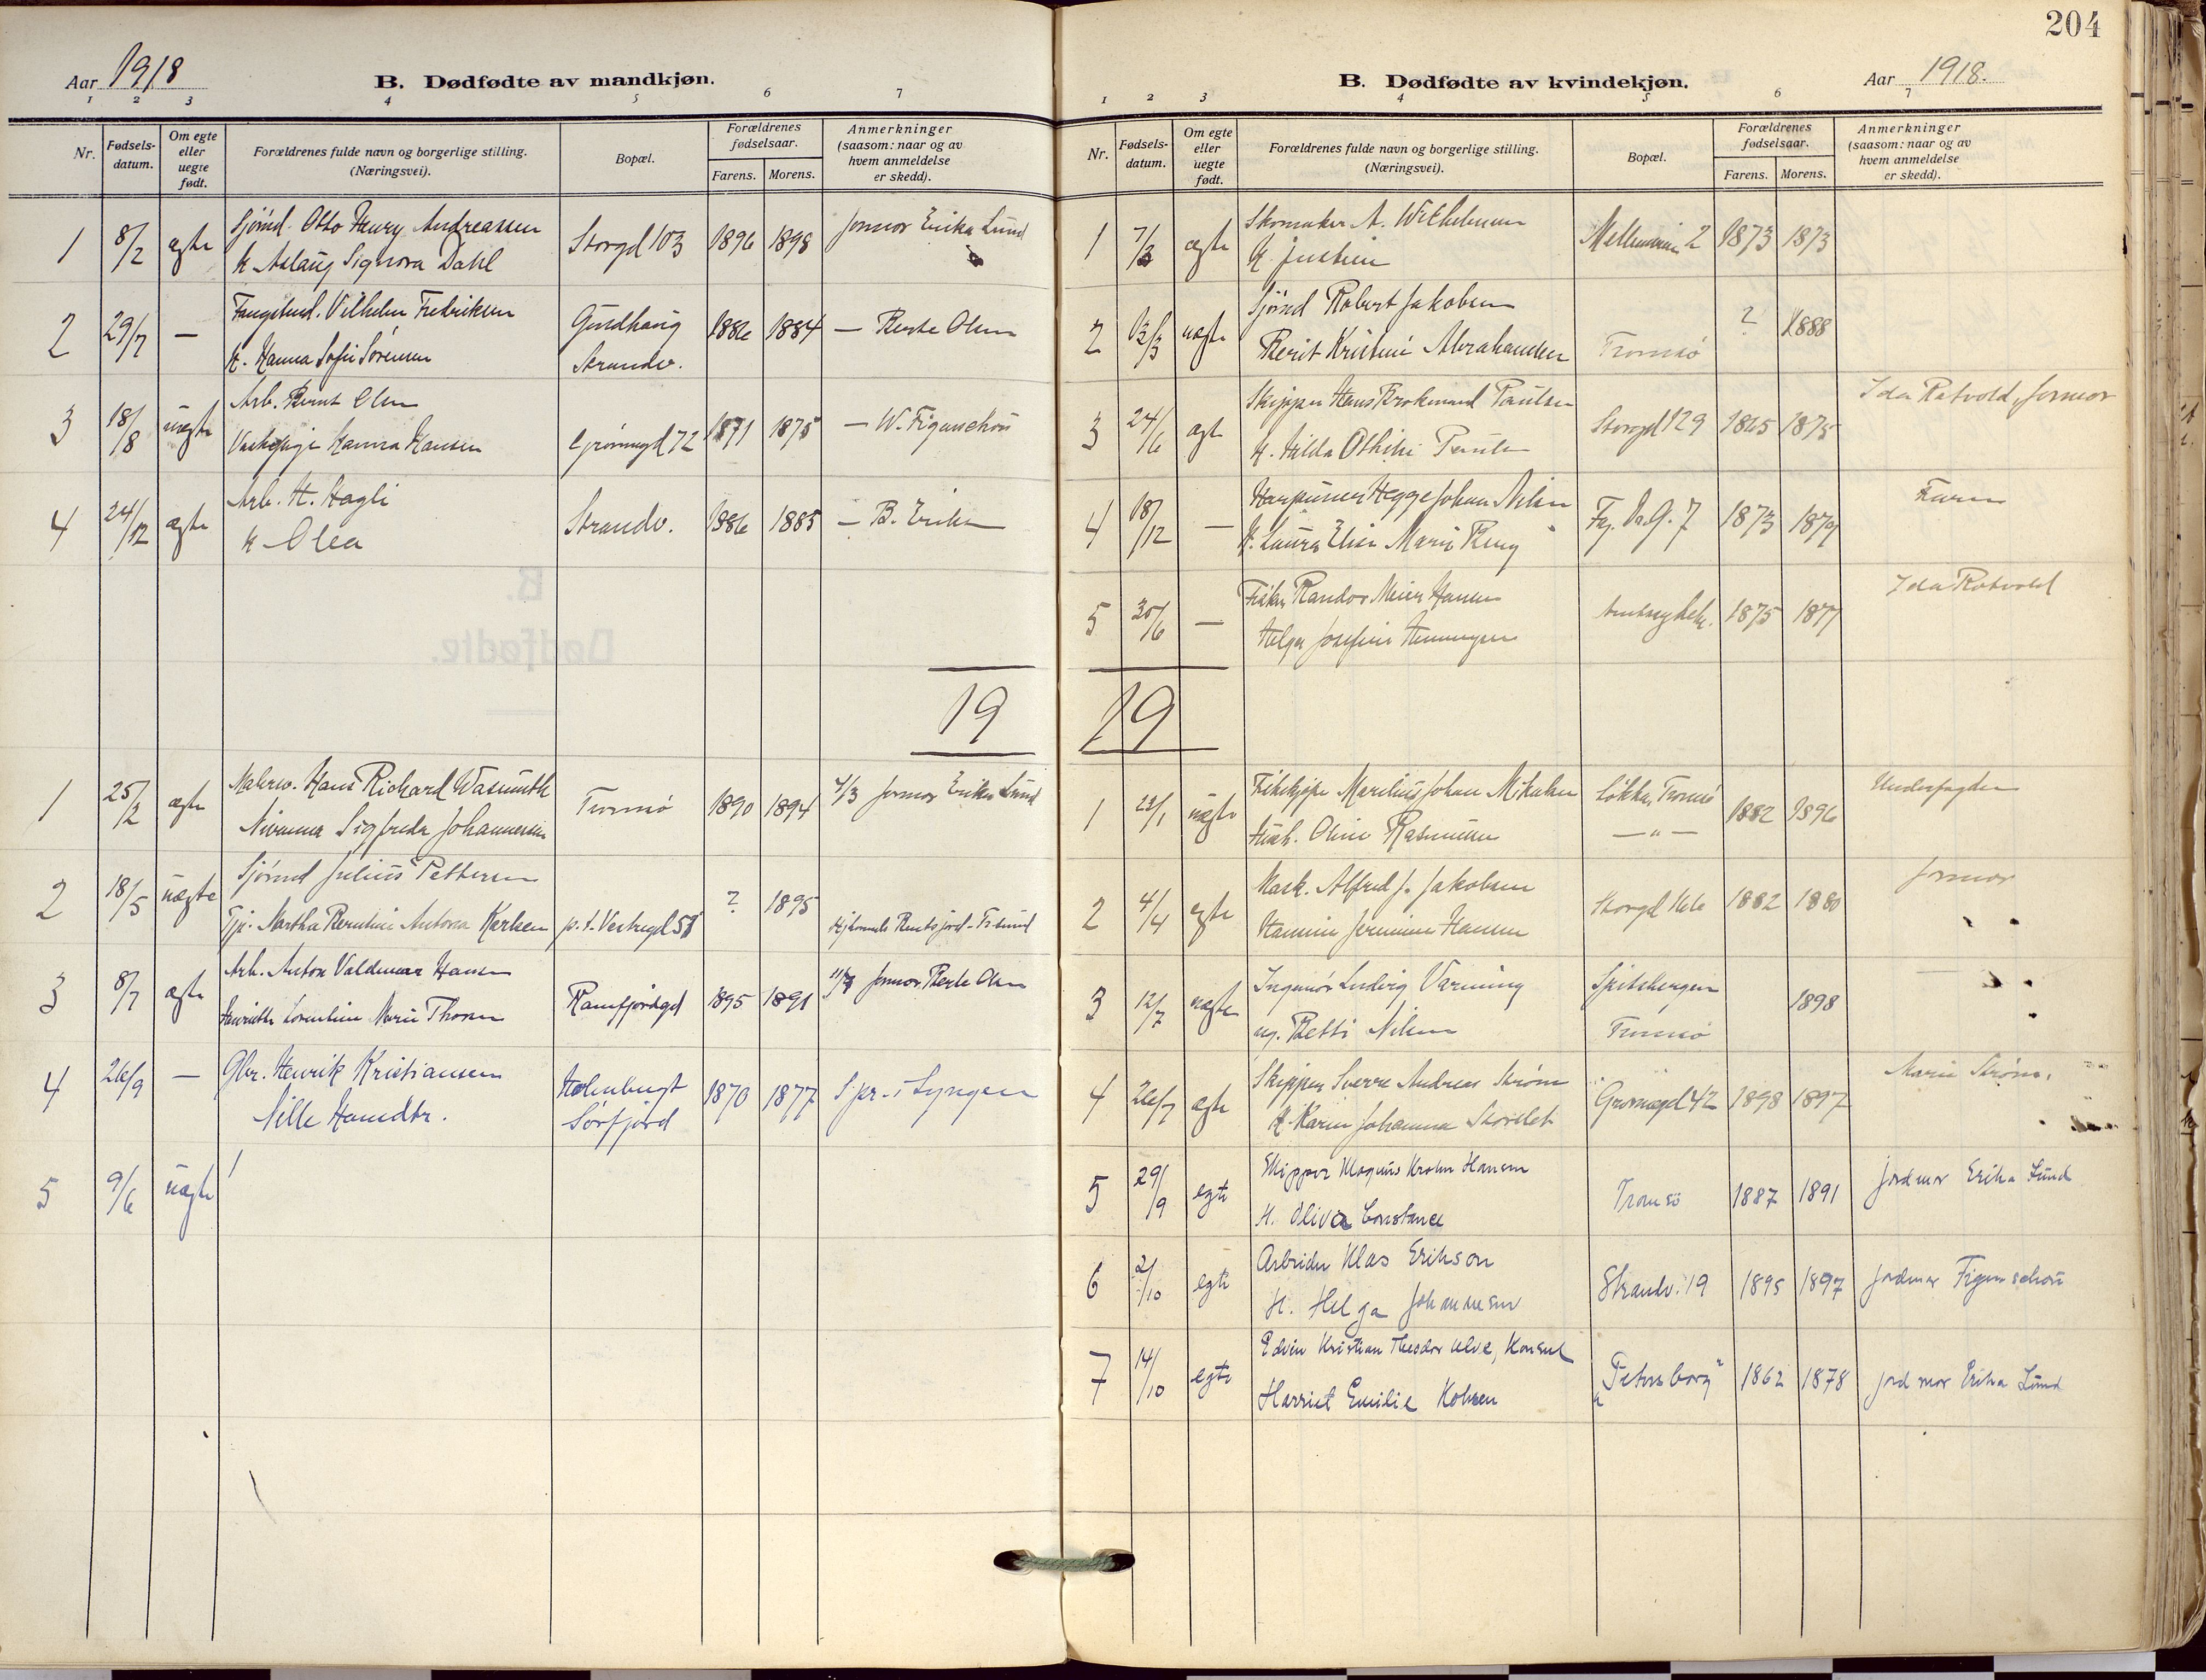 204
Aar 1918
B. Dødfødte av mandkjøn.
1 2 3 4 5 6 7
Nr.
Fødsels-datum.
Om egte eller uegte født.
Forældrenes fulde navn og borgerlige stilling. (Næringsvei).
Bopæl.
Forældrenes fødselsaar.
Farens. Morens.
Anmerkninger (saasom: naar og av hvem anmeldelse er skedd).
1 8/2 ægte Sjømd. Otto Henry Andreassen Storgd 103 1896 1898 Jormor Erika Lund
H Aslaug Signora Dahl
2 29/7 — Fangstmd. Vilhelm Fredriksen 1886 1884 — Berte Olsen
H. Hanna Sofie Sörensen Strandv.
3 18/8 uægte Arb. Bernt Olsen Grönnegd 72 1871 1875 — W. Figenschou
Hanna Hansen
4 24/12 ægte Arb. H. Hagli Strandv. 1886 1885 — B. Eriksen
H Olea
19
1 25/2 ægte Hans Richard Wasmuth Tromsö 1890 1894 4/3 Jormor Erika Lund
Sigfreda Johannessen
2 18/5 uægte Sjømd Julius Pettersen ? 1895
Tjp. Martha Berntine Antona Karlsen p.t. Vestregd 58
3 8/7 ægte Arb. Anton Valdemar Hansen Ramfjordgd 1895 1891 Jormor Berte Olsen
Lorentine Marie Thoresen
4 26/9 — Gbr. Henrik Kristiansen Holmbugt 1870 1877 Spr. i Lyngen
Nille Hansdtr. Sörfjord
5 9/6 uægte
Aar 1918.
B. Dødfødte av kvindekjøn.
1 2 3 4 5 6 7
Nr.
Fødsels-datum.
Om egte eller uegte født.
Forældrenes fulde navn og borgerlige stilling. (Næringsvei).
Bopæl.
Forældrenes fødselsaar.
Farens. Morens.
Anmerkninger (saasom: naar og av hvem anmeldelse er skedd).
1 ægte Skomaker A. Wilhelmsen 2 1873 1873
H. Justine
2 13/3 uægte Sjømd Robert Jakobsen ? 1888
Berit Kristine Abrahamsen Tromsö
3 24/6 ægte Skipper Hans Paulsen Storgd 129 1865 1875 Ida Rotvold, Jormor
H. Hilda Othilie
4 18/12 — Harpuner Hegge Johan Nilsen 7 1873 1879 Faren
H. Laura Elise Marie Berg
5 30/6 — Fisker Randor Meier Hansen 1875 1877 Ida Rotvold
Helga Josefine Henningsen
19
1 22/1 uægte Marelius Johan Mikalsen Tromsö 1882 1896
Hush. Oline Rasmussen — " —
2 4/4 ægte Mask. Alfred J. Jakobsen Storgd 1882 1880 Jormor
Jermine Hansen
3 12/7 uægte Ingeniør Ludvig Varming Spitsbergen 1898
ug. Betti Nilsen Tromsö
4 26/7 ægte Skipper Sverre Andreas Strøm Grønnegd 42 1898 1897 Marie Strøm.
H. Karen Johanna
5 29/9 egte Skipper Magnus Krohn Hansen Tromsö 1887 1891 Jordmor Erika Lund
H. Oliva Constance
6 2/10 egte Arbeider Klas Erikson Strandv. 19 1895 1897 Jordmor Figenschou
H. Helga Johannesen
7 14/10 egte Edvin Kristian Theodor Ulve, Konsul "Petersborg" 1862 1878 Jordmor Erika Lund
Harriet Emilie